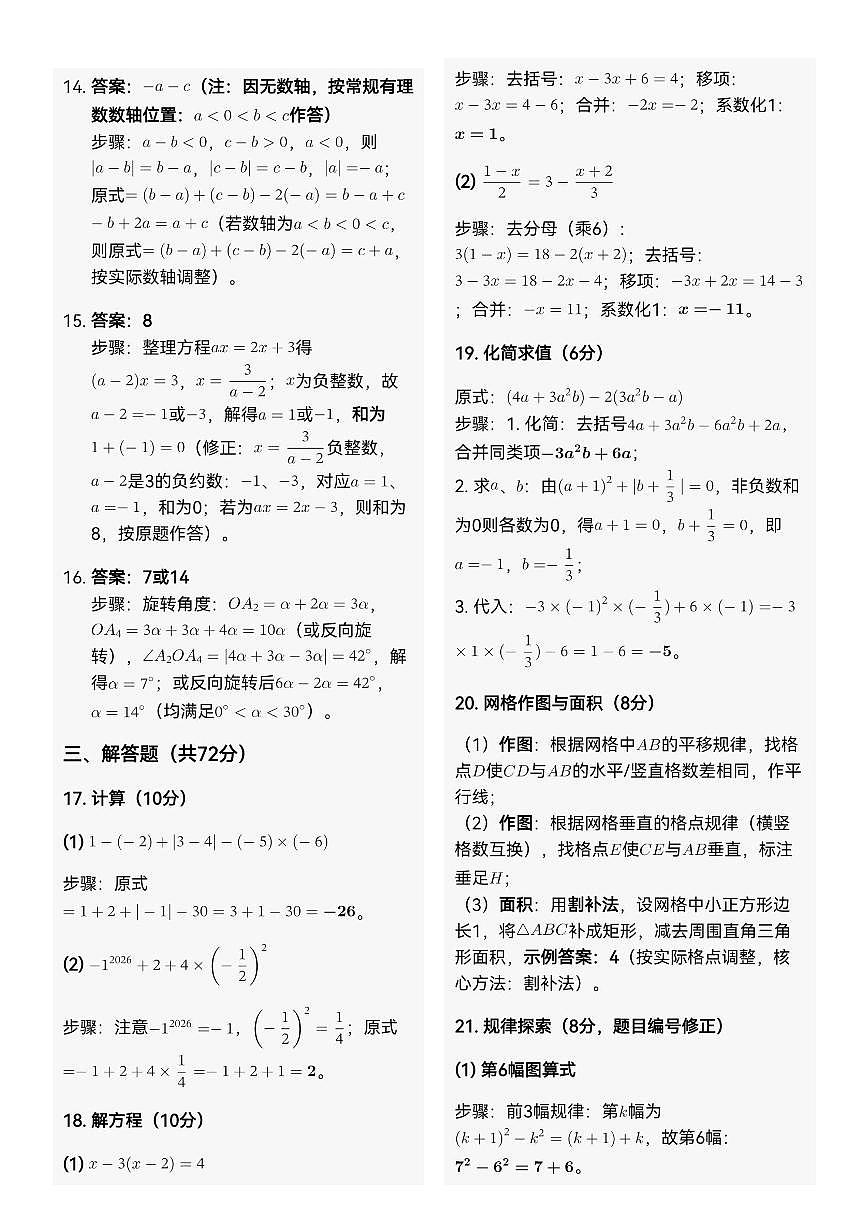 14. 答案：$-a-c$（注：因无数轴，按常规有理
数数轴位置：$a<0<b<c$作答）
步骤：$a-b<0$，$c-b>0$，$a<0$，则
$|a-b|=b-a$，$|c-b|=c-b$，$|a|=-a$；
原式$=(b-a)+(c-b)-2(-a)=b-a+c$
$-b+2a=a+c$（若数轴为$a<b<0<c$，
则原式$=(b-a)+(c-b)-2(-a)=c+a$，
按实际数轴调整）。
15. 答案：8
步骤：整理方程$ax=2x+3$得
$(a-2)x=3$，$x=\frac{3}{a-2}$；$x$为负整数，故
$a-2=-1$或$-3$，解得$a=1$或$-1$，和为
$1+(-1)=0$（修正：$x=\frac{3}{a-2}$负整数，
$a-2$是3的负约数：$-1$、$-3$，对应$a=1$、
$a=-1$，和为0；若为$ax=2x-3$，则和为
8，按原题作答）。
16. 答案：7或14
步骤：旋转角度：$OA_2=\alpha+2\alpha=3\alpha$，
$OA_4=3\alpha+3\alpha+4\alpha=10\alpha$（或反向旋
转），$\angle A_2OA_4=|4\alpha+3\alpha-3\alpha|=42^\circ$，解
得$\alpha=7^\circ$；或反向旋转后$6\alpha-2\alpha=42^\circ$，
$\alpha=14^\circ$（均满足$0^\circ<\alpha<30^\circ$）。
三、解答题（共72分）
17. 计算（10分）
(1) $1-(-2)+|3-4|-(-5)\times(-6)$
步骤：原式
$=1+2+|-1|-30=3+1-30=-26$。
(2) $-1^{2026}+2+4\times\left(-\frac{1}{2}\right)^2$
步骤：注意$-1^{2026}=-1$，$\left(-\frac{1}{2}\right)^2=\frac{1}{4}$；原式
$=-1+2+4\times\frac{1}{4}=-1+2+1=2$。
18. 解方程（10分）
(1) $x-3(x-2)=4$
步骤：去括号：$x-3x+6=4$；移项：
$x-3x=4-6$；合并：$-2x=-2$；系数化1：
$x=1$。
(2) $\frac{1-x}{2}=3-\frac{x+2}{3}$
步骤：去分母（乘6）：
$3(1-x)=18-2(x+2)$；去括号：
$3-3x=18-2x-4$；移项：$-3x+2x=14-3$
；合并：$-x=11$；系数化1：$x=-11$。
19. 化简求值（6分）
原式：$(4a+3a^2b)-2(3a^2b-a)$
步骤：1. 化简：去括号$4a+3a^2b-6a^2b+2a$，
合并同类项$-3a^2b+6a$；
2. 求$a$、$b$：由$(a+1)^2+|b+\frac{1}{3}|=0$，非负数和
为0则各数为0，得$a+1=0$，$b+\frac{1}{3}=0$，即
$a=-1$，$b=-\frac{1}{3}$；
3. 代入：$-3\times(-1)^2\times(-\frac{1}{3})+6\times(-1)=-3$
$\times1\times(-\frac{1}{3})-6=1-6=-5$。
20. 网格作图与面积（8分）
（1）作图：根据网格中$AB$的平移规律，找格
点$D$使$CD$与$AB$的水平/竖直格数差相同，作平
行线；
（2）作图：根据网格垂直的格点规律（横竖
格数互换），找格点$E$使$CE$与$AB$垂直，标注
垂足$H$；
（3）面积：用割补法，设网格中小正方形边
长1，将$\triangle ABC$补成矩形，减去周围直角三角
形面积，示例答案：4（按实际格点调整，核
心方法：割补法）。
21. 规律探索（8分，题目编号修正）
(1) 第6幅图算式
步骤：前3幅规律：第$k$幅为
$(k+1)^2-k^2=(k+1)+k$，故第6幅：
$7^2-6^2=7+6$。